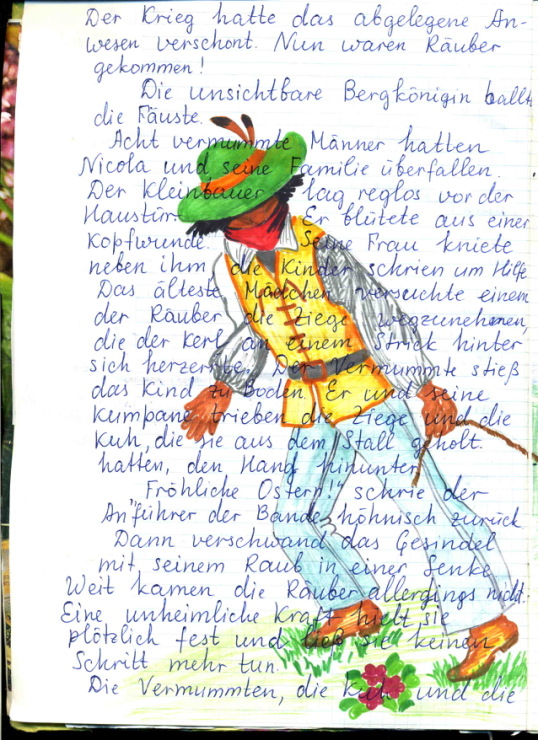 Der Krieg hatte das abgelegene An-
wesen verschont. Nun waren Räuber
gekommen!
Die unsichtbare Bergkönigin ballt
die Fäuste.
Acht vermummte Männer hatten
Nicola und seine Familie überfallen.
Der Kleinbauer lag reglos vor der
Haustür. Er blutete aus einer
Kopfwunde. Seine Frau kniete
neben ihm, die Kinder schrien um Hilfe
Das älteste Mädchen versuchte einem
der Räuber die Ziege wegzunehmen,
die der Kerl an einem Strick hinter
sich herzerrte. Der Vermummte stieß
das Kind zu Boden. Er und seine
Kumpane trieben die Ziege und die
Kuh, die sie aus dem Stall geholt
hatten, den Hang hinunter.
"Fröhliche Ostern!" schrie der
Anführer der Bande höhnisch zurück
Dann verschwand das Gesindel
mit seinem Raub in einer Senke
Weit kamen die Räuber allergings nicht.
Eine unheimliche Kraft hielt sie
plötzlich fest und ließ sie keinen
Schritt mehr tun.
Die Vermummten, die Kuh und die